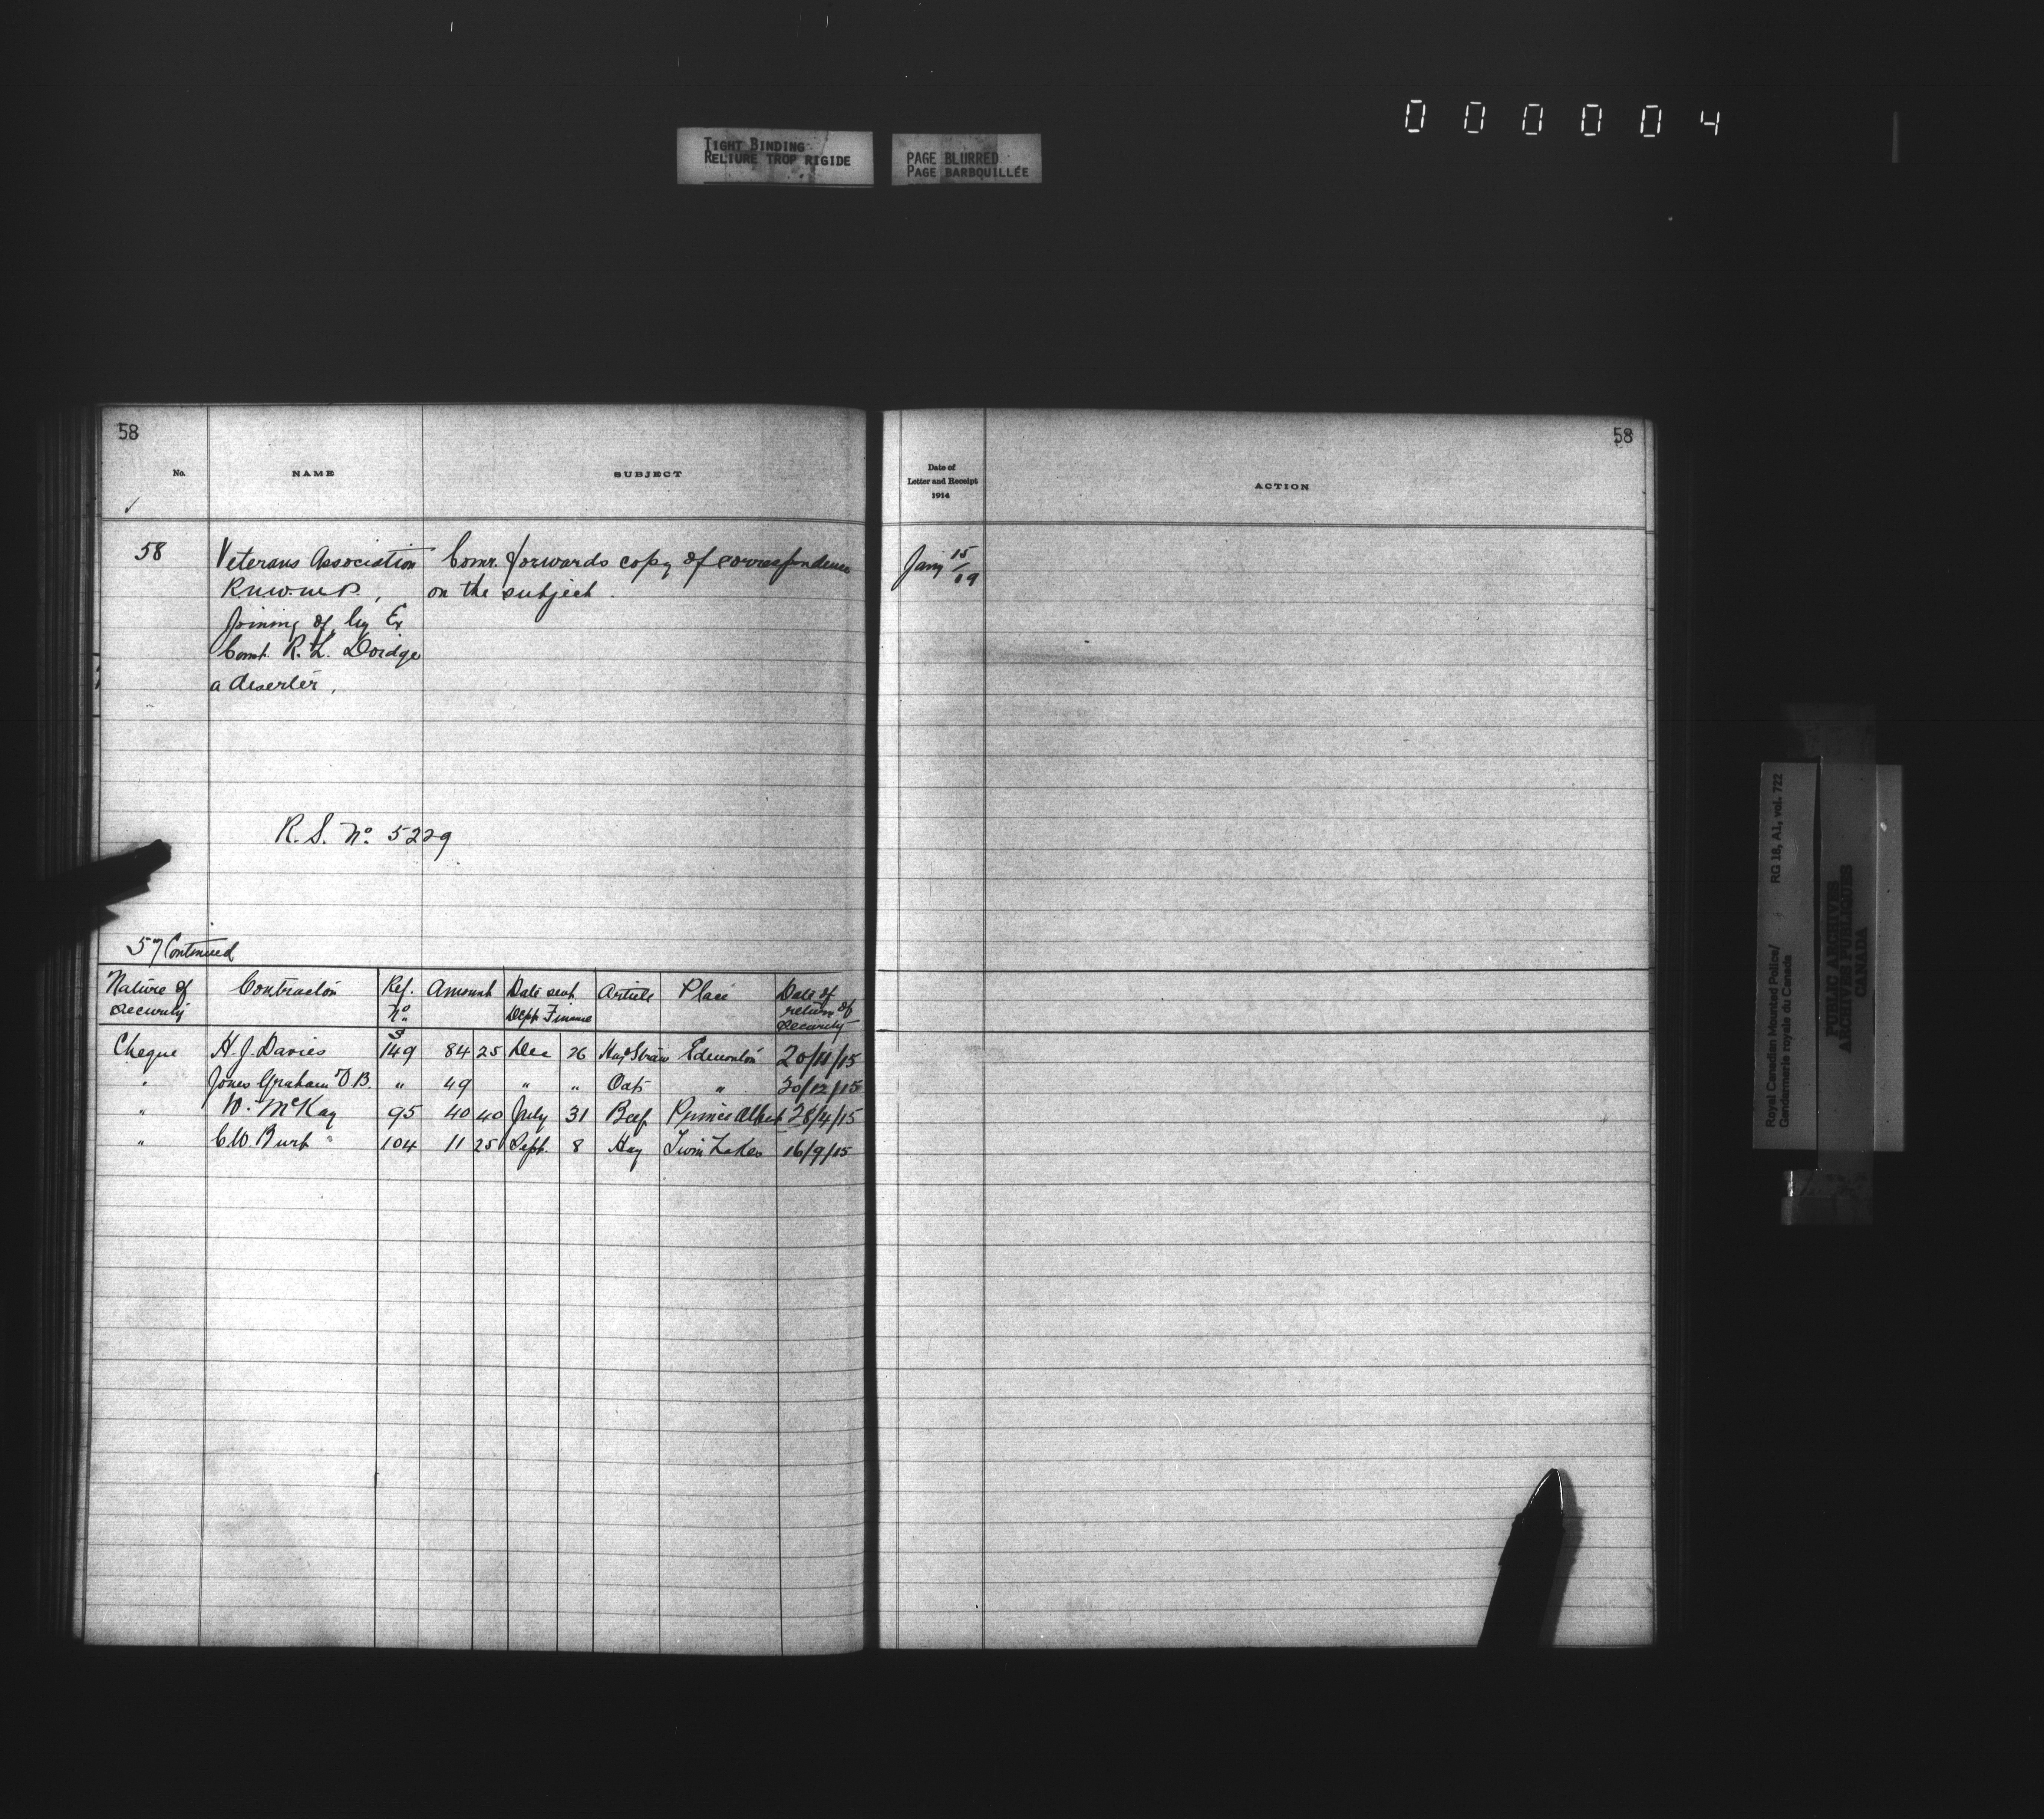 000004
TIGHT BINDING
RELIURE TROP RIGIDE
PAGE BLURRED
PAGE BARBOUILLÉE
58
No. NAME SUBJECT
58 Veterans Association Comr. forwards copy of correspondence
R.N.W.M.P., on the subject.
Joining of by Ex
Const. R. L. Doidge
a deserter,
R.S. No. 5229
57 Continued
Nature of Contractor Ref. Amount Date sent Article Place Date of
security No. Dept Finance return of
security
Cheque H. J. Davies 149 84 25 Dec 26 Hay & Straw Edmonton 20/11/15
" Jones Graham " 49 " " Oats " 30/12/15
" W. McKay 95 40 40 July 31 Beef Prince Albert 28/4/15
" C.W. Burt " 104 11 25 Sept. 8 Hay Twin Lakes 16/9/15
58
Date of
Letter and Receipt
1914
ACTION
Jany 15/19
Royal Canadian Mounted Police/ RG 18, A1, vol. 722
Gendarmerie royale du Canada
PUBLIC ARCHIVES
ARCHIVES PUBLIQUES
CANADA